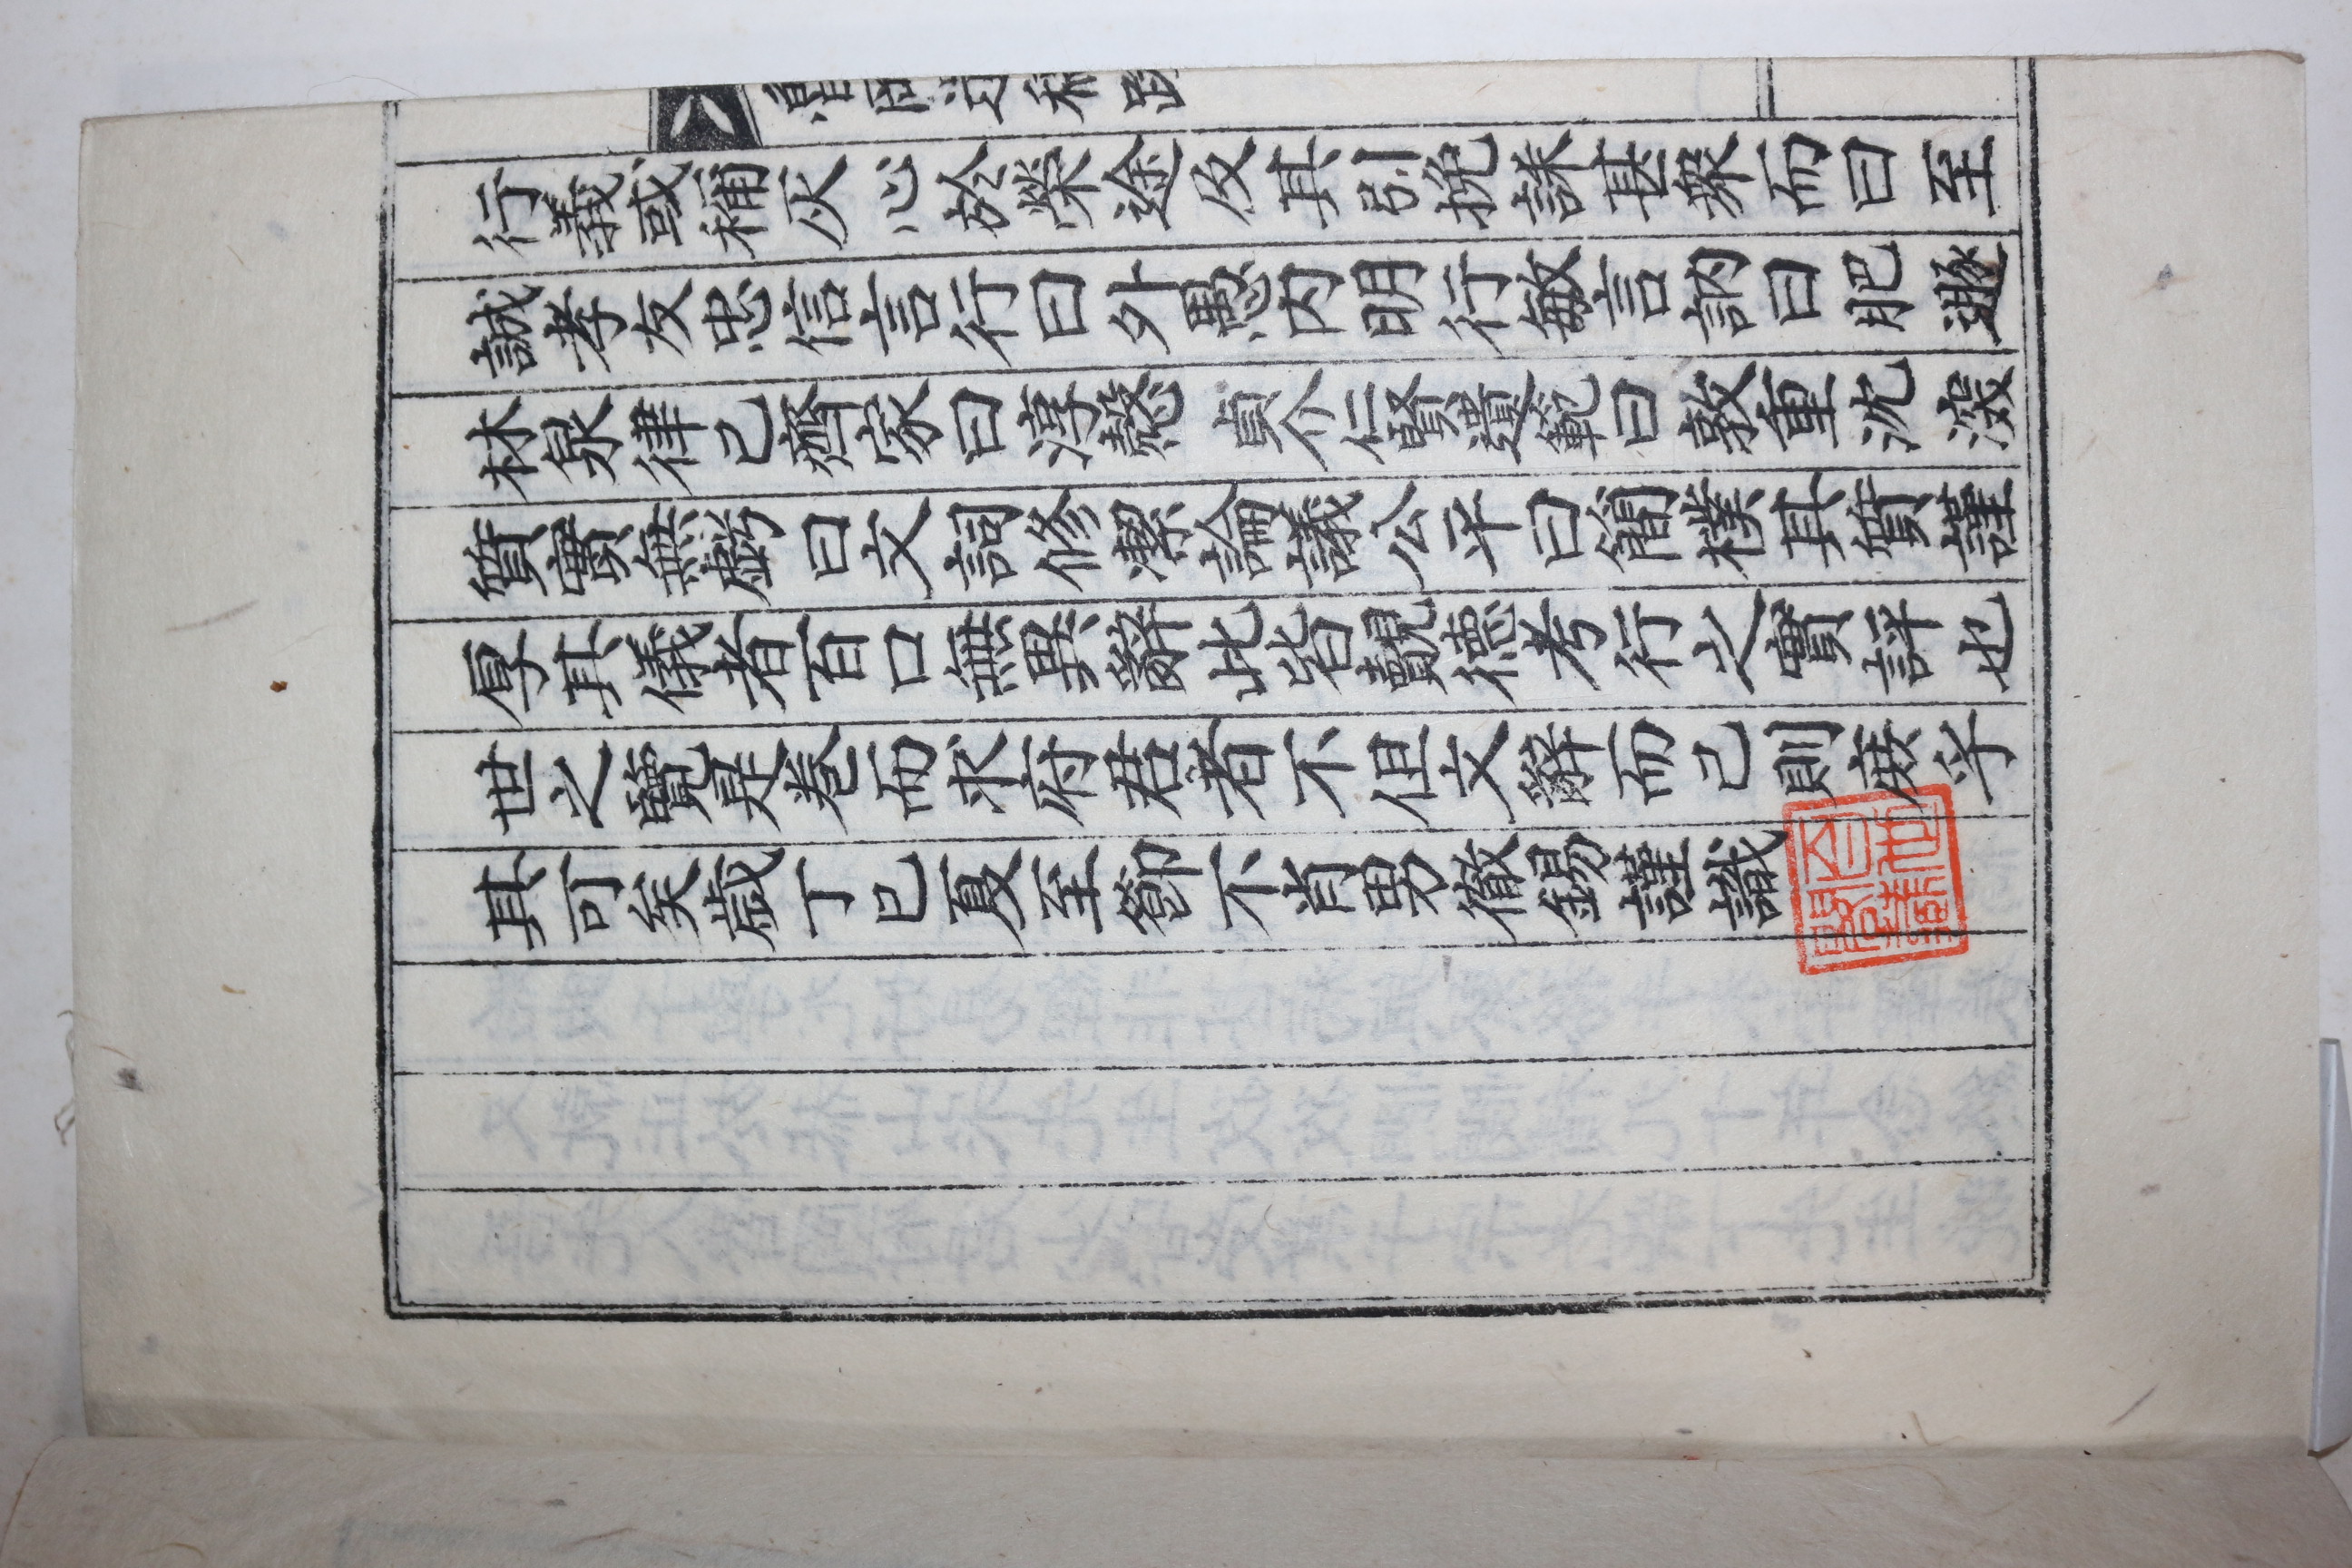 行義或稱灰心於榮途及其引挽誄甚衆而曰至
誠孝友忠信言行曰外愚內明行敏言訥曰肥遯
林泉律己齊家曰淳慤貞介仁賢遺範曰敦重沈潛
質實無彣曰文詞修潔論議公平曰簡樸其質謹
厚其儀者百口無異辭此皆觀德考行之實詳也
世之覽是卷而求府君者不但文辭而已則庶乎
其可矣歲丁巳夏至節不肖男徹錫謹識